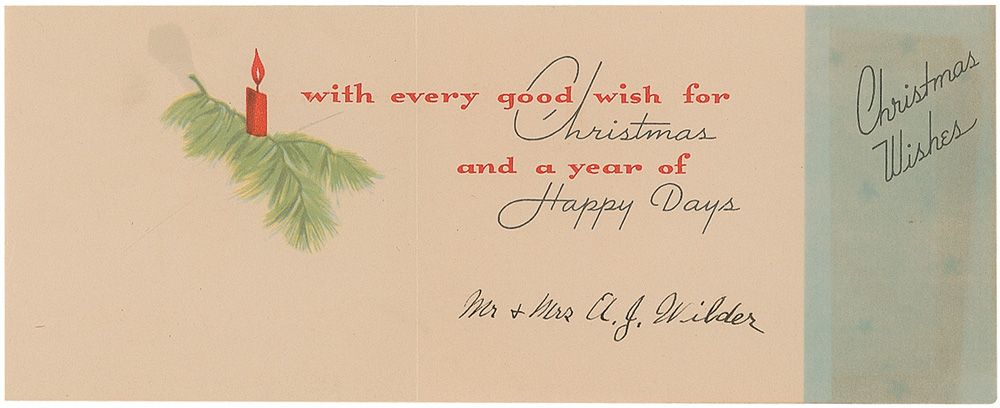 with every good wish for
Christmas
and a year of
Happy Days
Mr & Mrs A. J. Wilder
Christmas
Wishes